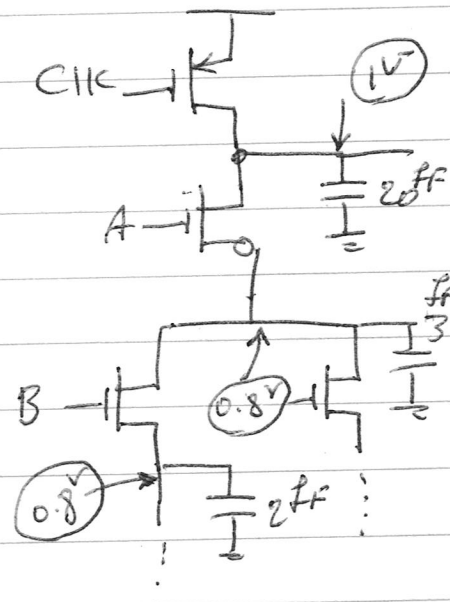 Clk
1V
20 fF
A
fF
3
B
0.8V
0.8V
2fF